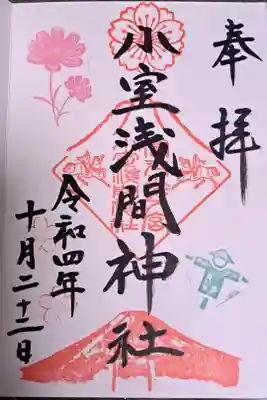 奉拝
小室浅間神社
令和四年
十月二十二日